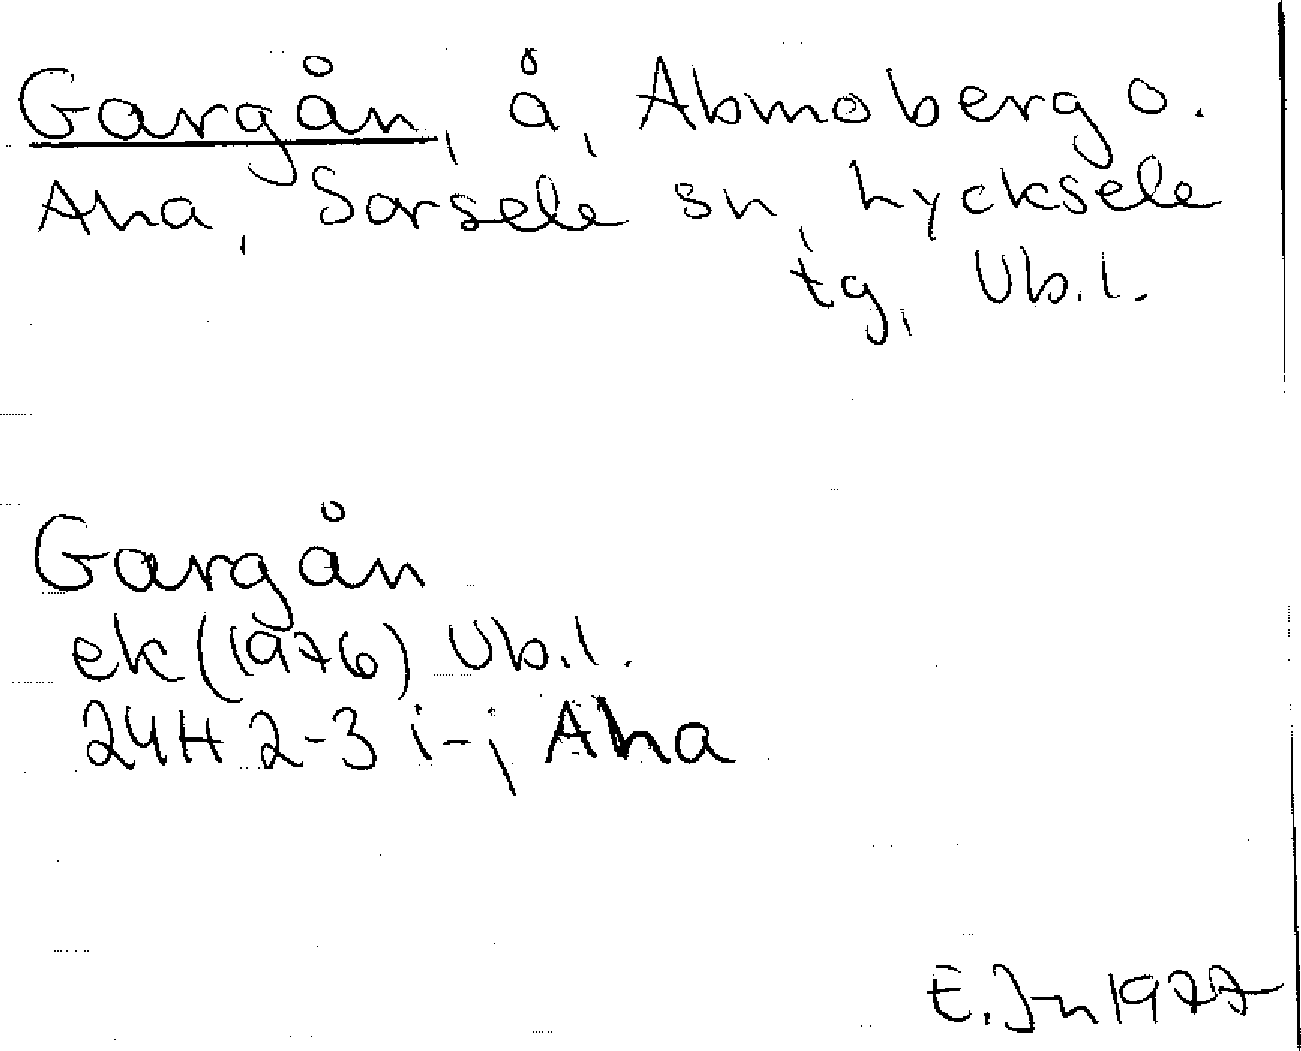 Gargån, å, Abmoberg o.
Aha, Sorsele sn, Lycksele
tg, Vb.l.
Gargån
ek (1976) Vb.l.
24H 2-3 i-j Aha
E. Jn 1977